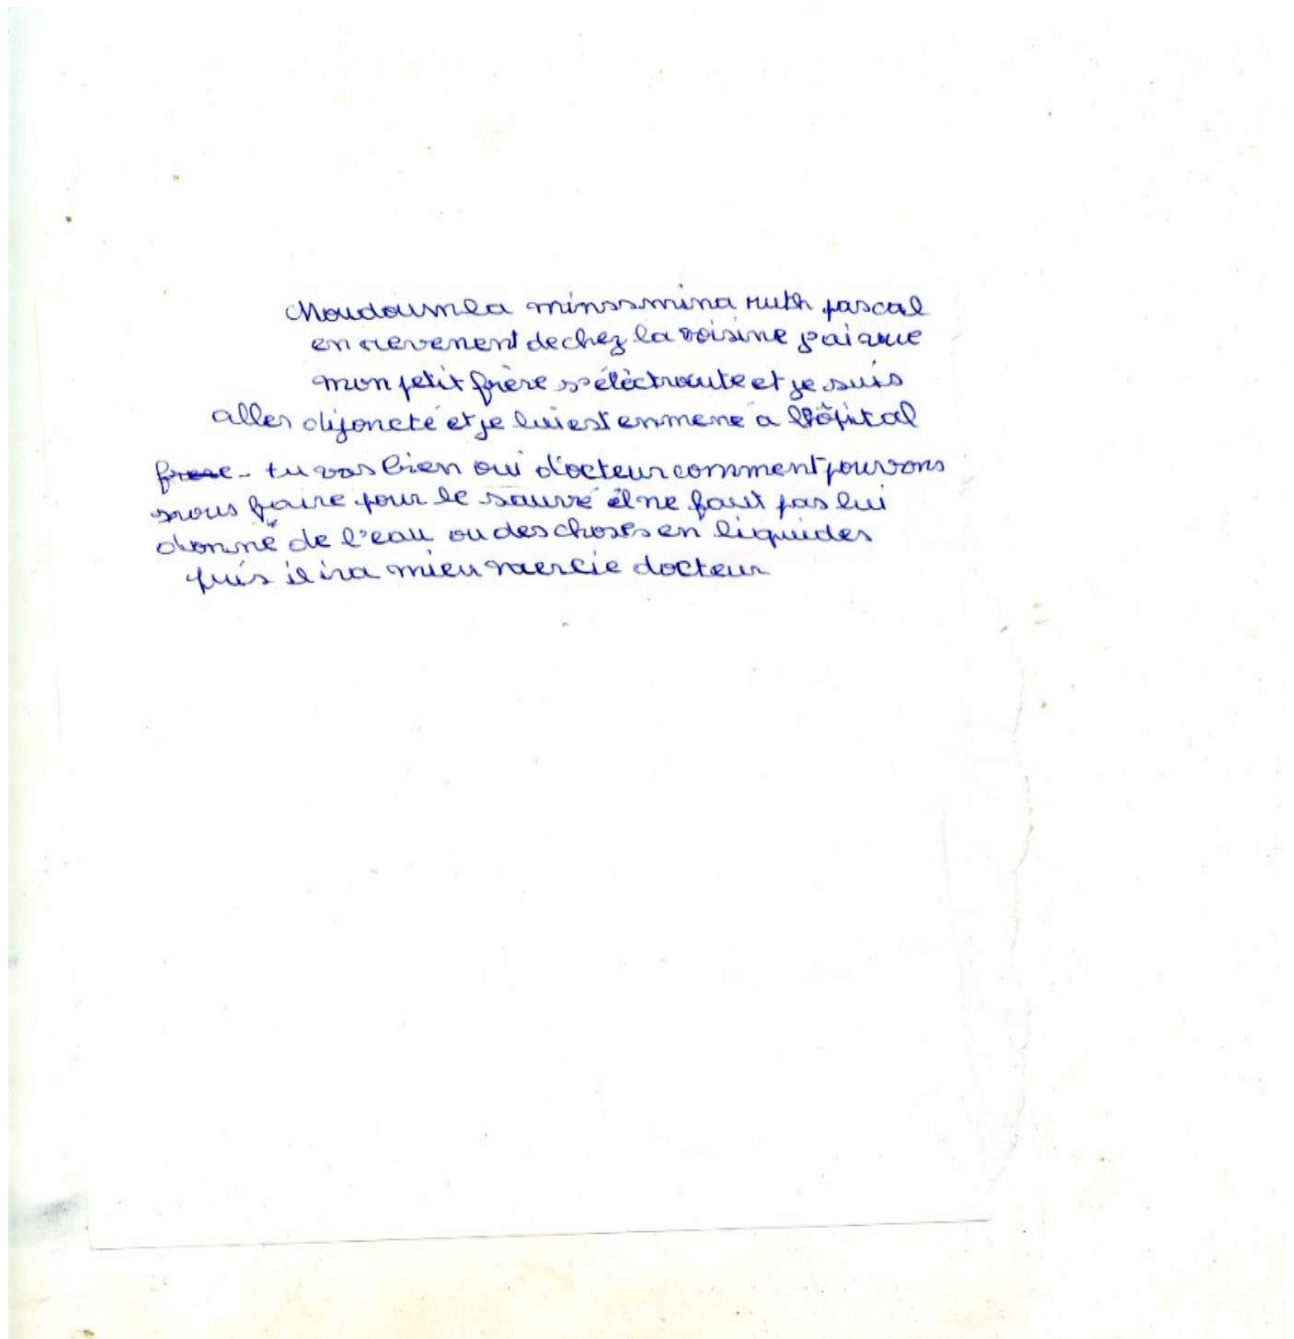 Moudoumla minssmina ruth pascal
en revenent de chez la voisine j'ai vue
mon petit frère s'élèctroute et je suis
aller dijoncté et je lui est enmené a l'hôpital
frere - tu vas bien oui d'octeur comment pouvons
nous faire pour le sauvé il ne faut pas lui
donné de l'eau ou des choses en liquides
puis il ira mieu mercie docteur